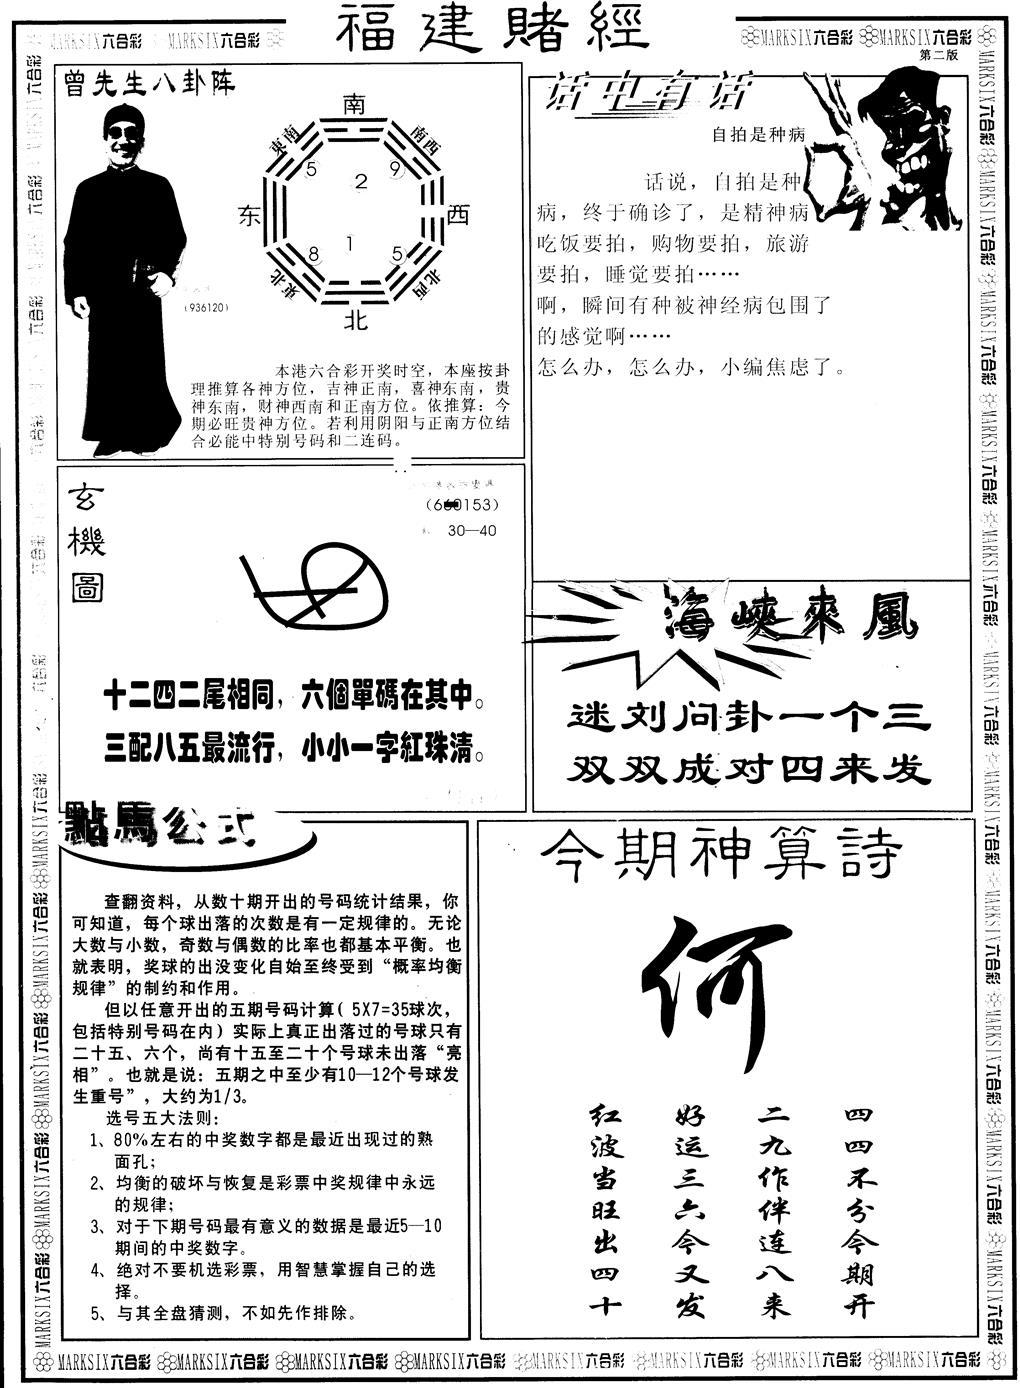 福建賭經
MARKSIX六合彩 MARKSIX六合彩
MARKSIX六合彩 MARKSIX六合彩
第二版
曾先生八卦阵
南
東南
南西
5
9
2
东
西
8
1
5
東北
北西
北
(936120)
本港六合彩开奖时空，本座按卦
理推算各神方位，吉神正南，喜神东南，贵
神东南，财神西南和正南方位。依推算：今
期必旺贵神方位。若利用阴阳与正南方位结
合必能中特别号码和二连码。
话中有话
自拍是种病
话说，自拍是种
病，终于确诊了，是精神病
吃饭要拍，购物要拍，旅游
要拍，睡觉要拍……
啊，瞬间有种被神经病包围了
的感觉啊……
怎么办，怎么办，小编焦虑了。
玄機圖
30—40
十二四二尾相同，六個單碼在其中。
三配八五最流行，小小一字紅珠清。
海峽來風
迷刘问卦一个三
双双成对四来发
點馬公式
查翻资料，从数十期开出的号码统计结果，你
可知道，每个球出落的次数是有一定规律的。无论
大数与小数，奇数与偶数的比率也都基本平衡。也
就表明，奖球的出没变化自始至终受到“概率均衡
规律”的制约和作用。
但以任意开出的五期号码计算( 5X7=35球次，
包括特别号码在内) 实际上真正出落过的号球只有
二十五、六个，尚有十五至二十个号球未出落“亮
相”。也就是说：五期之中至少有10—12个号球发
生重号”，大约为1/3。
选号五大法则：
1、80%左右的中奖数字都是最近出现过的熟
面孔；
2、均衡的破坏与恢复是彩票中奖规律中永远
的规律；
3、对于下期号码最有意义的数据是最近5—10
期间的中奖数字。
4、绝对不要机选彩票，用智慧掌握自己的选
择。
5、与其全盘猜测，不如先作排除。
今期神算詩
何
四四不分今期开
二九作伴连八来
好运三六今又发
红波当旺出四十
MARKSIX六合彩 MARKSIX六合彩 MARKSIX六合彩 MARKSIX六合彩 MARKSIX六合彩 MARKSIX六合彩 MARKSIX六合彩 MARKSIX六合彩